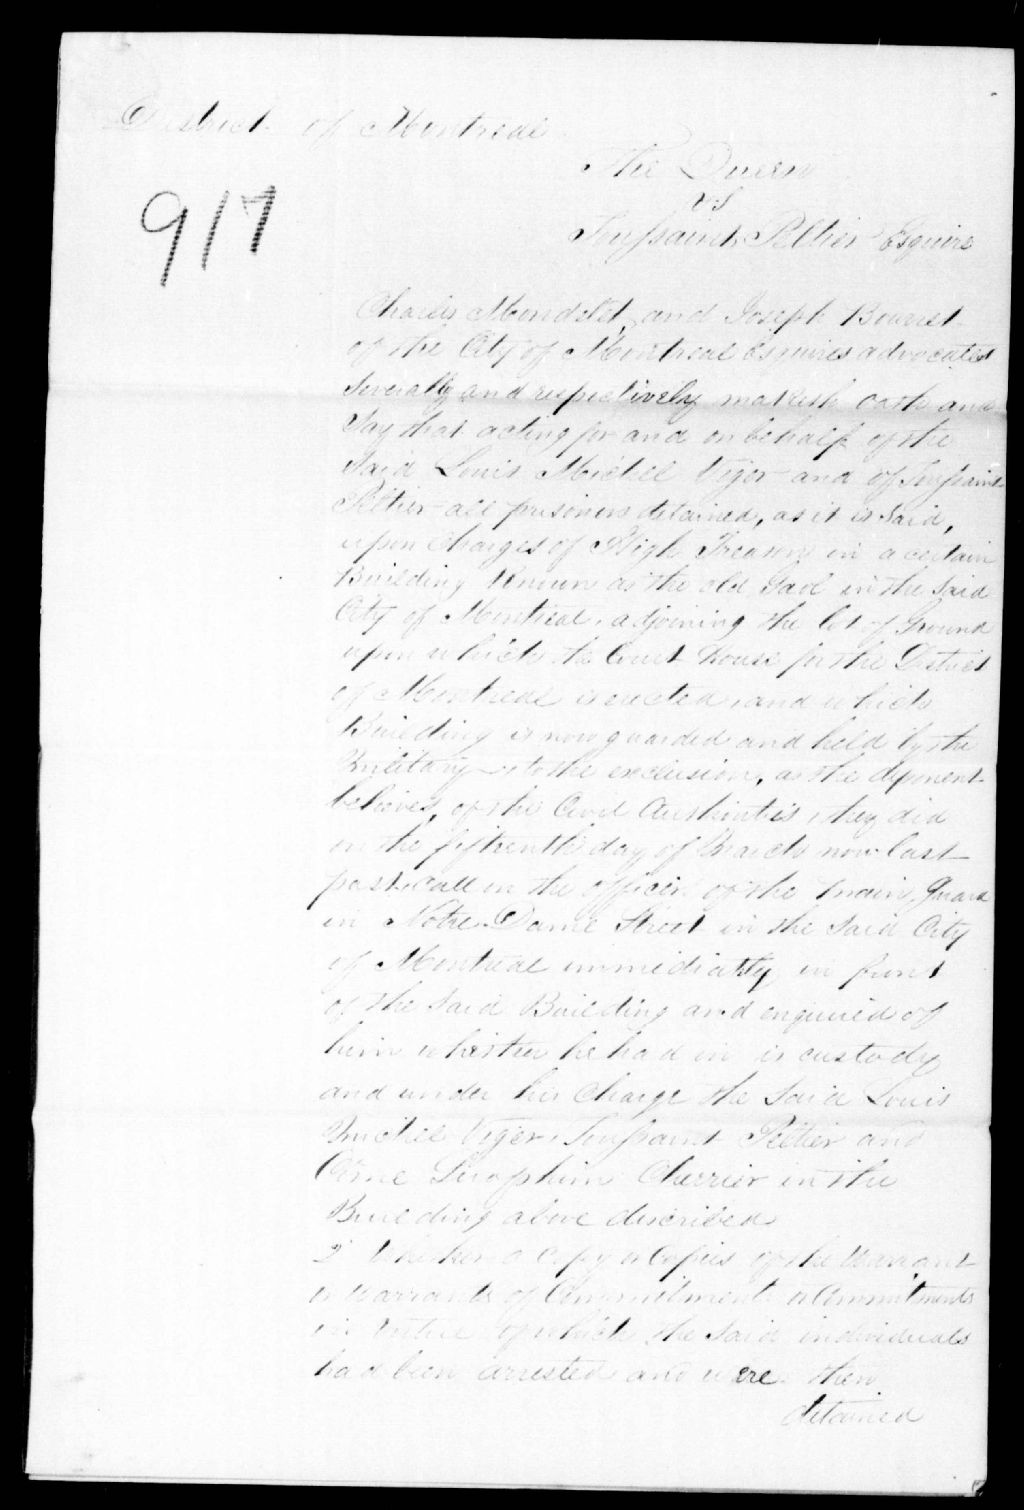 District of Montreal
The Queen
vs
917
Toussaint Peltier Esquire
Charles Mondelet, and Joseph Bourret
of the City of Montreal Esquires advocates
severally and respectively maketh oath and
Say that acting for and on behalf of the
Said Louis Michel Viger and of Toussaint
Peltier all prisoners detained, as it is said,
upon Charges of High Treason in a certain
Building Known as the old Gaol in the Said
City of Montreal, adjoining the lot of Ground
upon which the Court House for the District
of Montreal is erected, and which
Building is now guarded and held by the
Military to the exclusion, as the deponent
believes, of the Civil Authorities, they did
on the fifteenth day of March now last
past, call on the officer of the main Guard
in Notre Dame Street in the Said City
of Montreal immediately in front
of the Said Building and enquired of
him whether he had in is custody
and under his Charge the Said Louis
Michel Viger, Toussaint Peltier and
Come Seraphim Cherrier in the
Building above described
2° Whether a Copy or Copies of the Warrant
or Warrants of Commitment or Commitments
in virtue of which the Said individuals
had been arrested and were then
detained